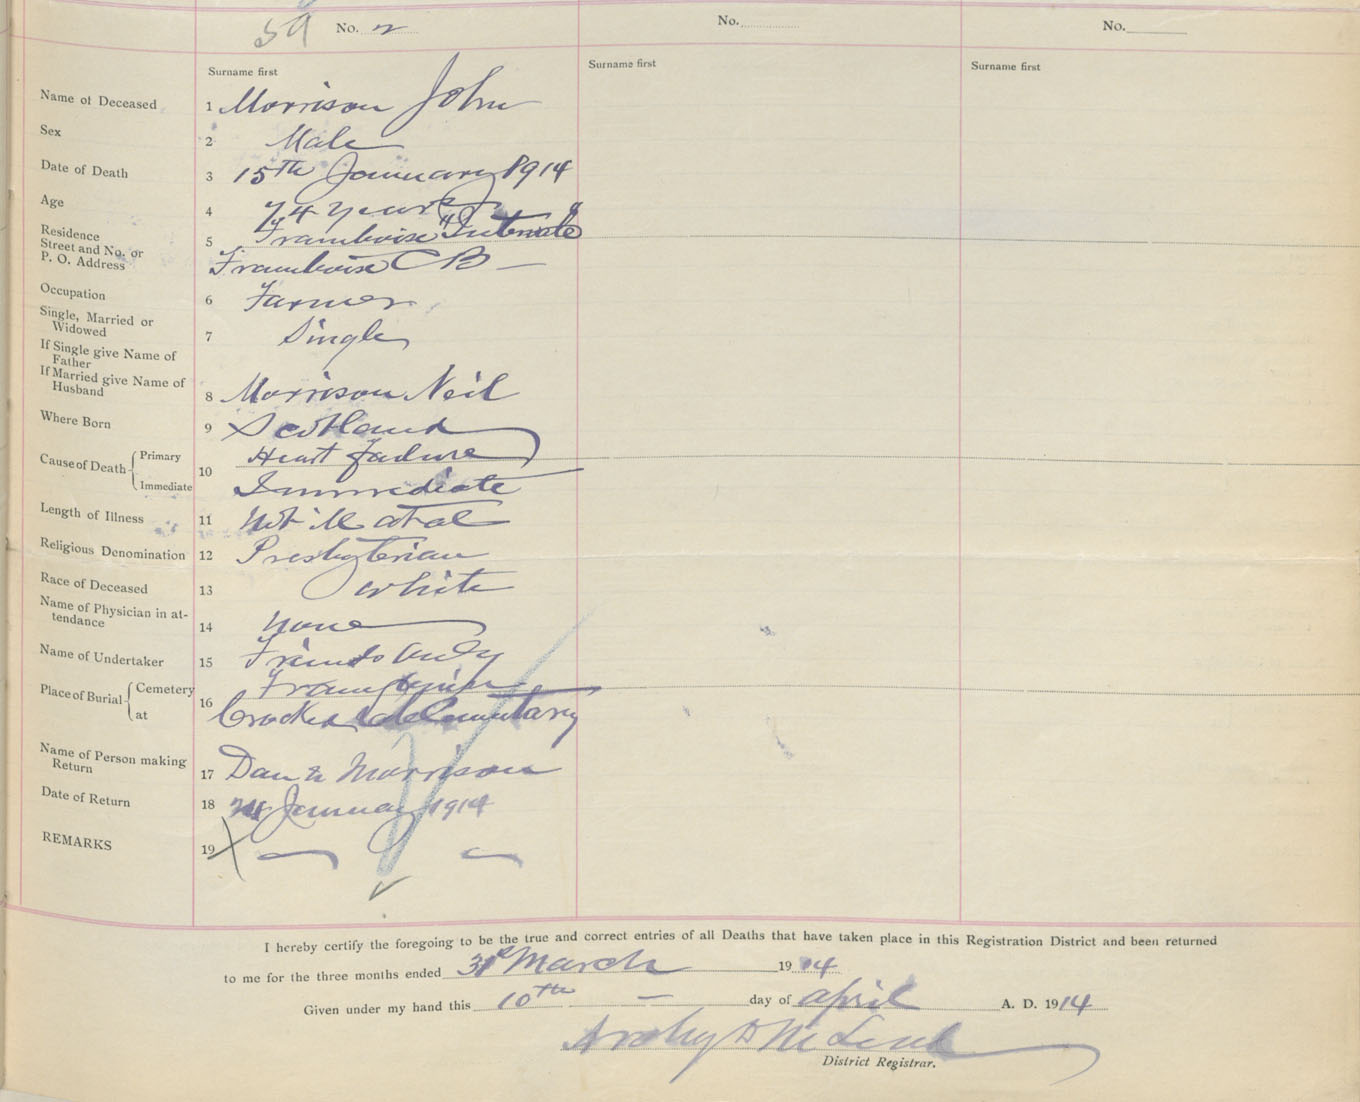 59 No. 2 No. No.
Surname first Surname first Surname first
Name of Deceased 1 Morrison John
Sex 2 Male
Date of Death 3 15th January 1914
Age 4 74 years
Residence 5 Framboise
Street and No. or
P. O. Address Framboise C B
Occupation 6 Farmer
Single, Married or
Widowed 7 Single
If Single give Name of
Father
If Married give Name of
Husband 8 Morrison Neil
Where Born 9 Scotland
Cause of Death Primary 10 Heart failure
Immediate Immediate
Length of Illness 11 Not ill at al
Religious Denomination 12 Presbyterian
Race of Deceased 13 White
Name of Physician in at-
tendance 14 None
Name of Undertaker 15 Friends only
Place of Burial Cemetery 16
at
Name of Person making
Return 17 Dan Morrison
Date of Return 18 January 1914
REMARKS 19
I hereby certify the foregoing to be the true and correct entries of all Deaths that have taken place in this Registration District and been returned
to me for the three months ended 31st March 1914
Given under my hand this 10th — day of april A. D. 1914
District Registrar.